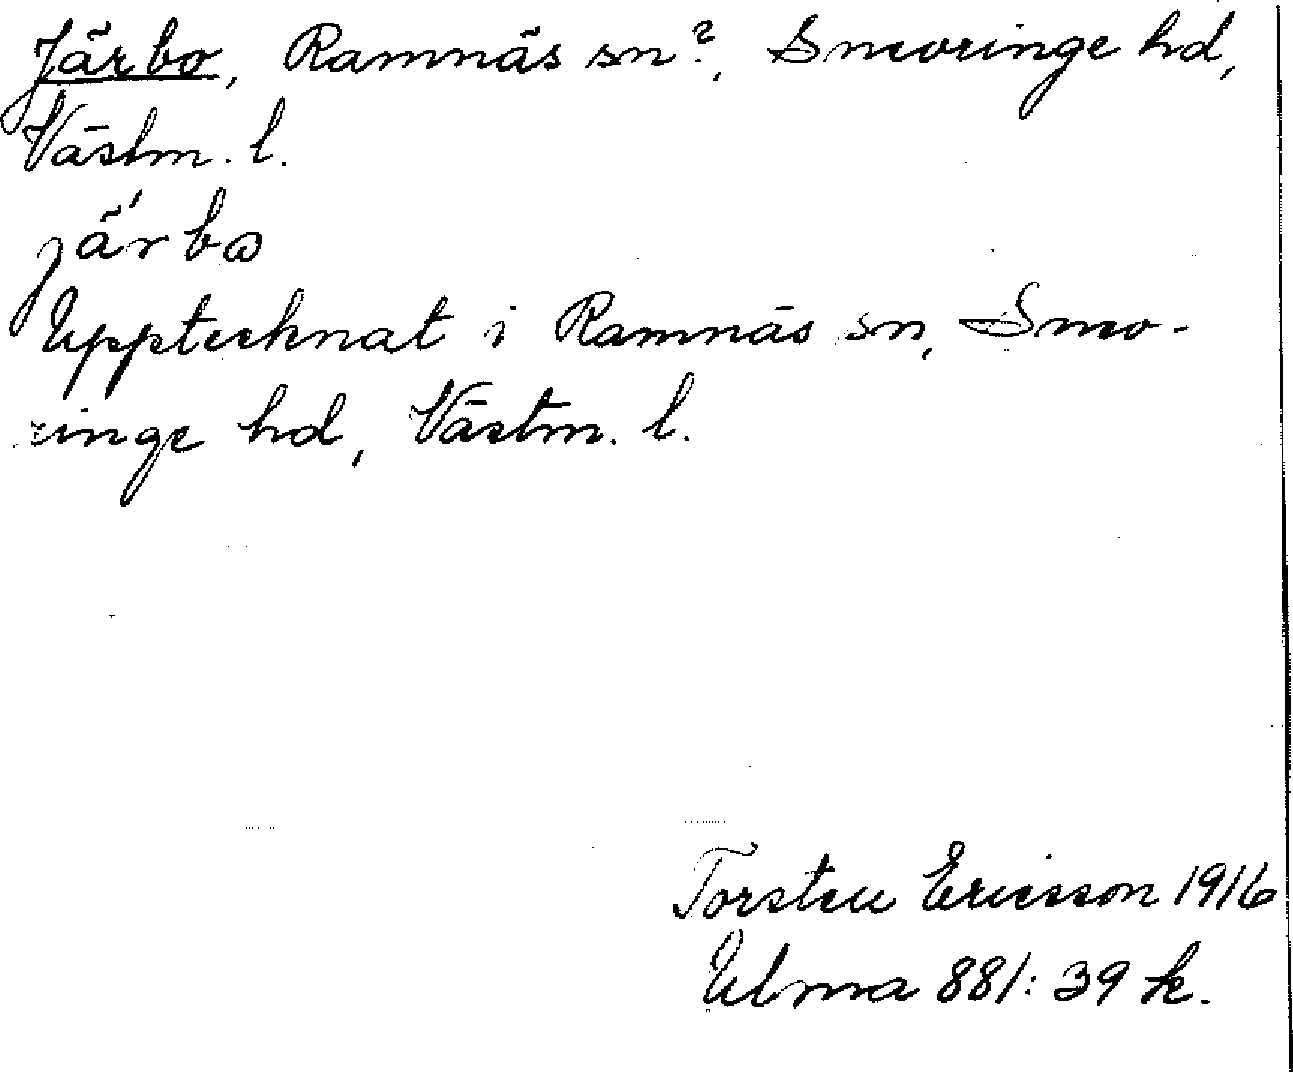 Järbo, Ramnäs sn?, Snevringe hd,
Västm. l.
jä́rbω
Upptecknat i Ramnäs sn, Snev-
ringe hd, Västm. l.
Torsten Ericsson 1916
Ulma 881:39 k.